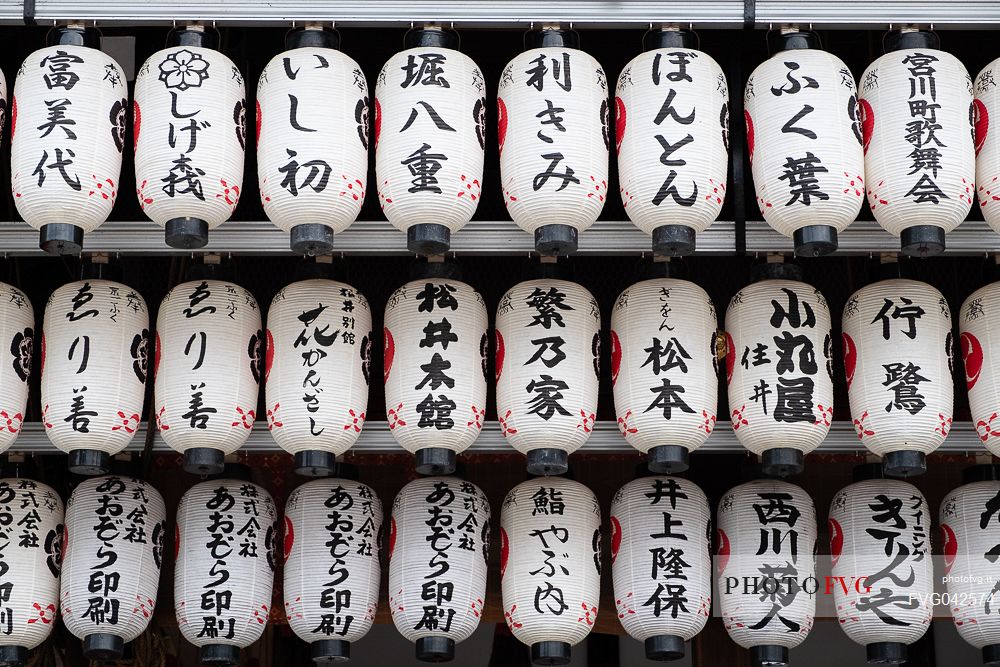 富美代
しげ森
いし初
堀八重
利きみ
ぼんとん
ふく葉
宮川町歌舞会
ゑり善
ゑり善
松井別館
花かんざし
松井本館
繁乃家
ぎをん
松本
小丸屋
住井
佇鷺
株式会社
あおぞら印刷
株式会社
あおぞら印刷
株式会社
あおぞら印刷
株式会社
あおぞら印刷
株式会社
あおぞら印刷
鮨やぶ内
井上隆保
西川
ダイニング
きん
PHOTOFVG
photofvg.it
FVG042574